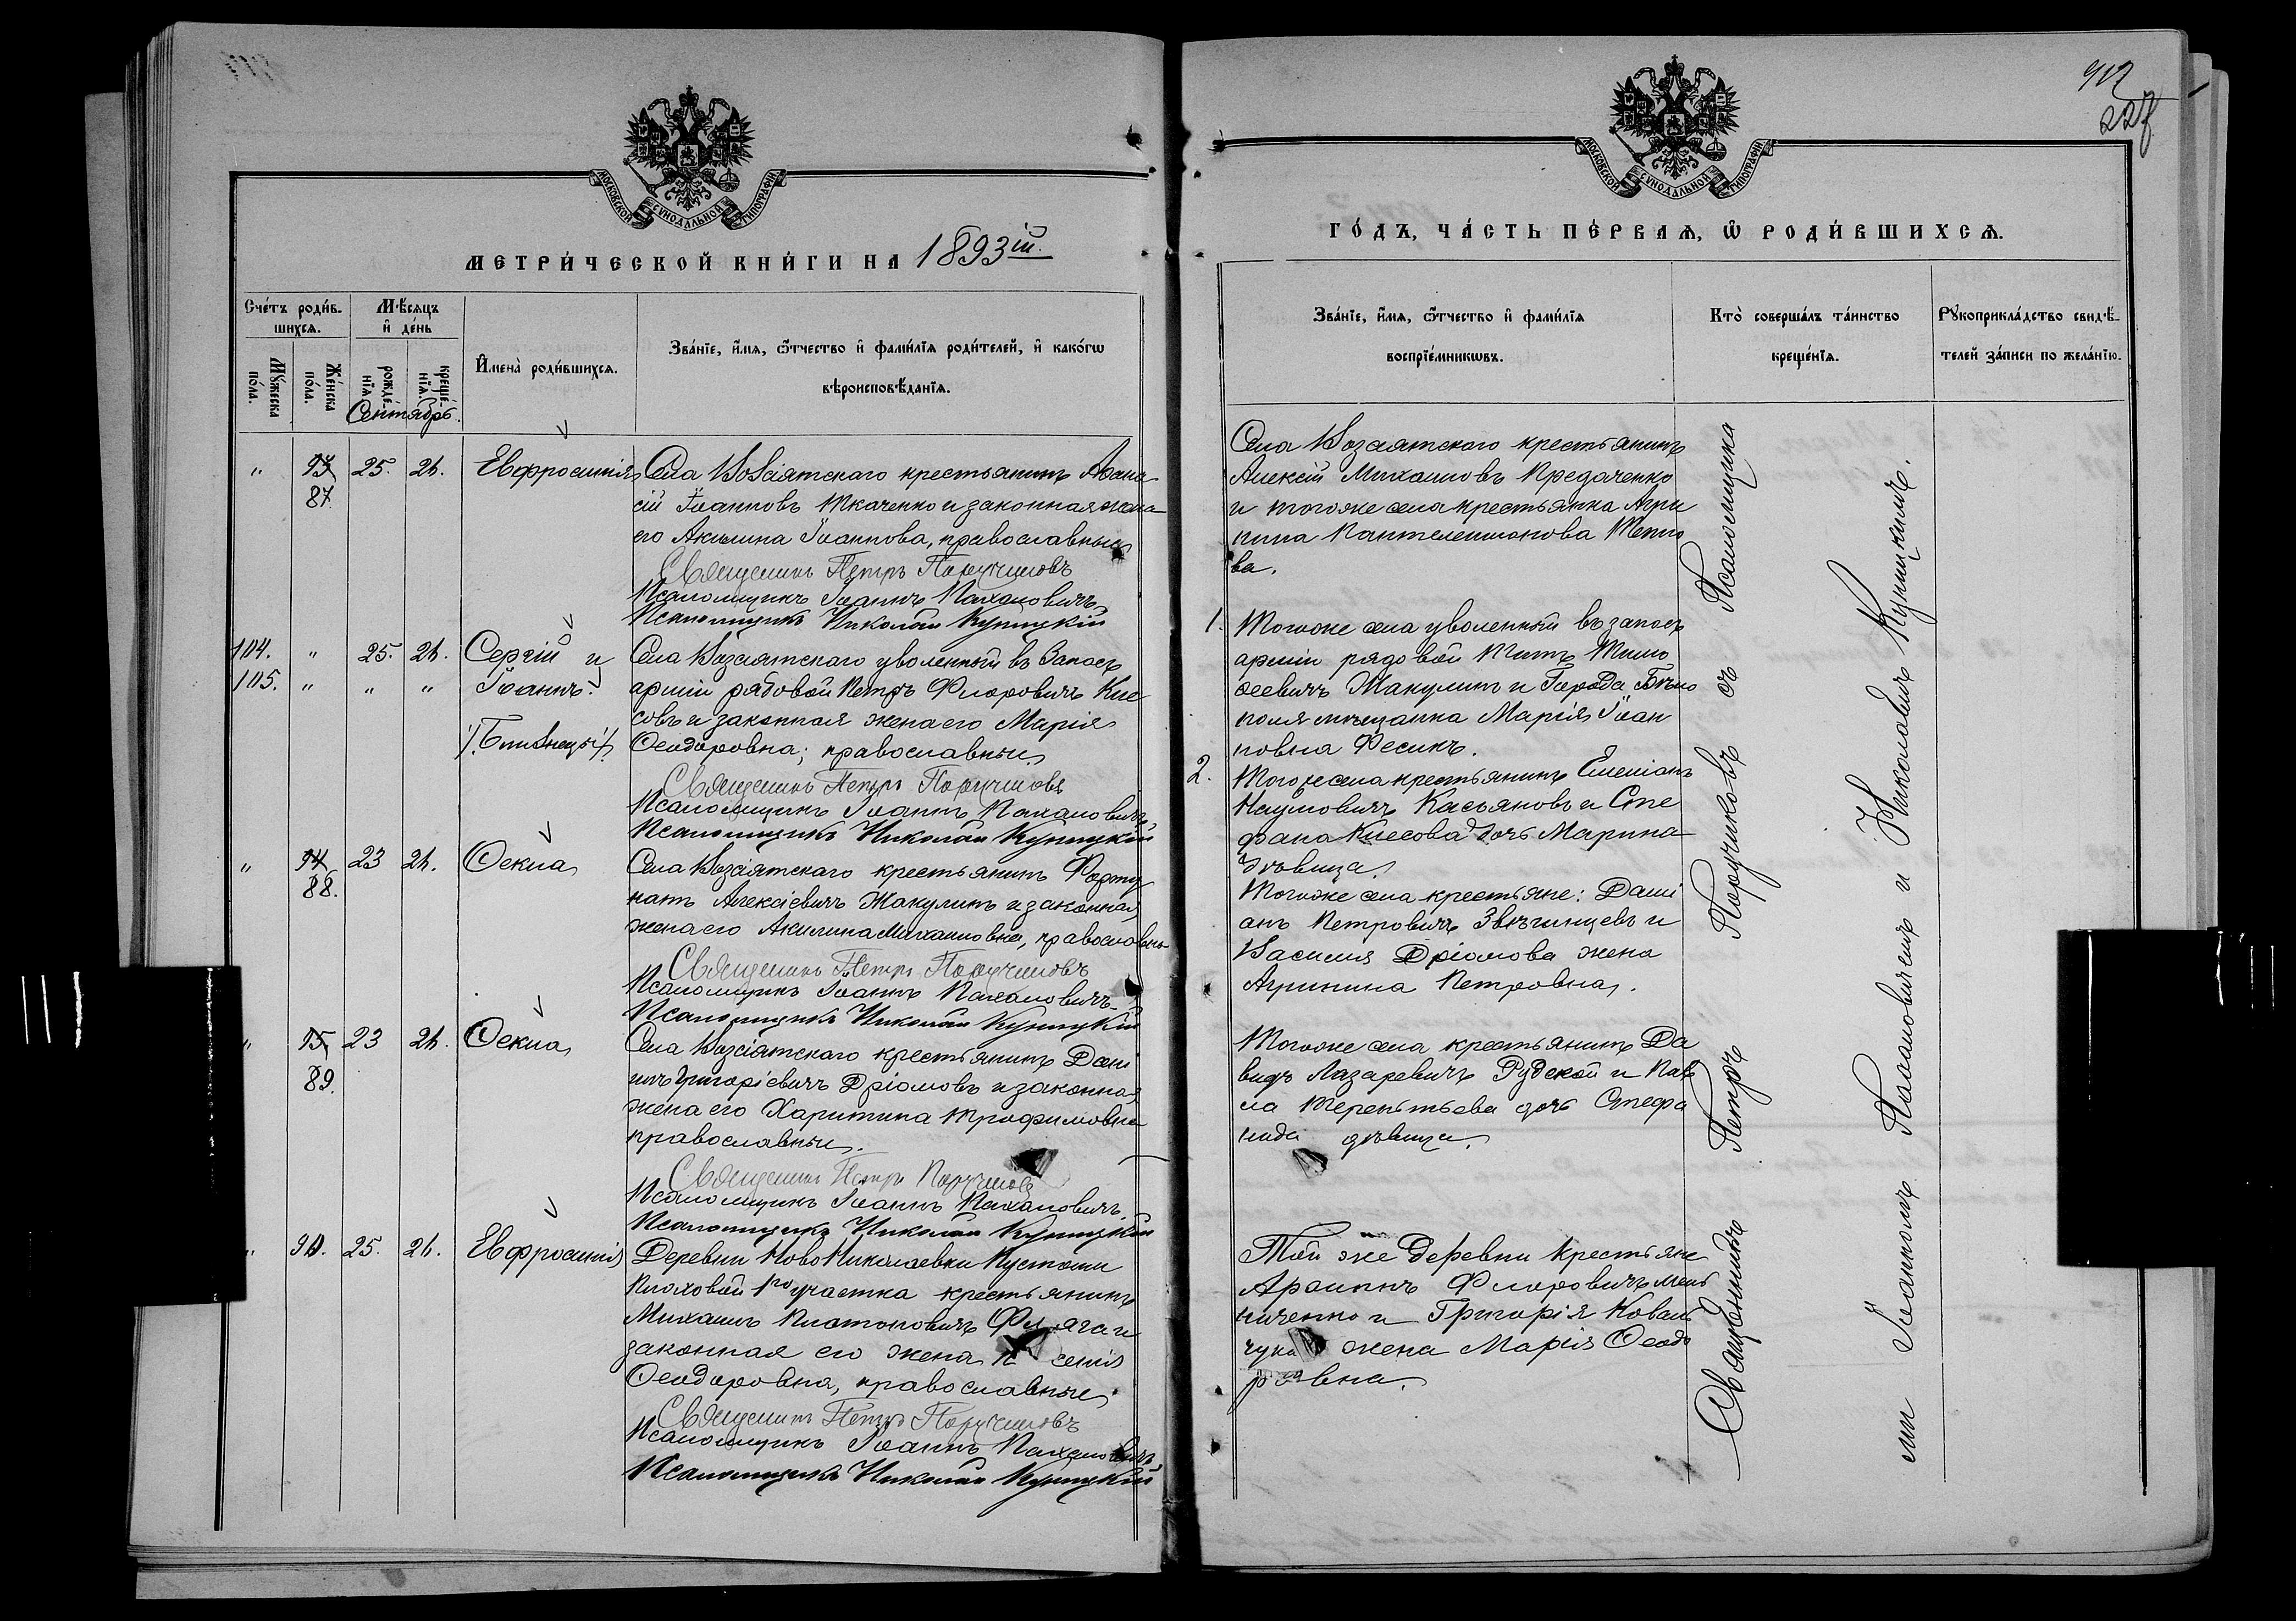 МОСКОВСКОЙ СУНОДАЛЬНОЙ ТИПОГРАФІИ
МЕТРИ́ЧЕСКОЙ КНИ́ГИ НА 1893 ій.
Сче́тъ роди́в-
шихсѧ.
Мꙋ́жеска по́ла.
Же́нска по́ла.
Мѣ́сѧцъ
и҆ де́нь
рожде́-
нїѧ.
креще́-
нїѧ.
И҆мена̀ роди́вшихсѧ.
Зва́нїе, и҆́мѧ, ѻ҆́тчество и҆ фами́лїѧ роди́телей, и҆ како́гѡ
вѣроисповѣ́данїѧ.
Сентябрь.
" 93 25. 26. Евфросинія Села Возсіятскаго крестьянинъ Аѳана
87. сій Іоанновъ Ткаченко и законная жена
его Акилина Іоаннова, православные
Священникъ Петръ Поручиковъ
Псаломщикъ Іоаннъ Паха­ловичъ
Псаломщикъ Николай Куницкій
104. " 25. 26. Сергій и Села Возсіятскаго уволенный въ Запасъ
105. " " " Іоаннъ. арміи рядовой Петръ Флоровичъ Кие
совъ и законная жена его Марія
(Близнецы) Ѳеодоровна; православные
Священникъ Петръ Поручиковъ
Псаломщикъ Іоаннъ Пахаловичъ
Псаломщикъ Николай Куницкій
" 94 23 26. Ѳекла Села Возсіятскаго крестьянинъ Форту
88. натъ Алексіевичъ Жакулинъ и законная
жена его Акилина Михаиловна, православные
Священникъ Петръ Поручиковъ
Псаломщикъ Іоаннъ Пахаловичъ
Псаломщикъ Николай Куницкій
" 95 23 26. Ѳекла Села Возсіятскаго крестьянинъ Дані
89. илъ Григоріевичъ Дріомовъ и законная
жена его Харитина Трофимовна
православные.
Священникъ Петръ Поручиковъ
Псаломщикъ Іоаннъ Пахаловичъ
Псаломщикъ Николай Куницкій
" 90. 25. 26. Евфросинія Деревни НовоНиколаевки Пустоши
Плоховой 1го участка крестьянинъ
Михаилъ Платоновичъ
законная его жена
Ѳеодоровна, православные
Священникъ Петръ Поручиковъ
Псаломщикъ Іоаннъ Пахаловичъ
Псаломщикъ Николай Куницкій
227
МОСКОВСКОЙ СУНОДАЛЬНОЙ ТИПОГРАФІИ
ГО́ДЪ, ЧА́СТЬ ПЕ́РВАѦ, Ѡ҆ РОДИ́ВШИХСѦ.
Зва́нїе, и҆́мѧ, ѻ҆́тчество и҆ фами́лїѧ
воспрїе́мникѡвъ.
Кто̀ соверша́лъ та́инство
креще́нїѧ.
Рꙋкоприкла́дство свидѣ́-
телей за́писи по жела́нїю.
Села Возсіятскаго крестьянинъ
Алексій Михаиловъ Предаченко
и тогоже села крестьянка Агри
пина Пантелеимонова
ва.
1. Тогоже села уволенный въ запасъ
арміи рядовой Титъ Тимо
ѳеевичъ Жакулинъ и Города Бѣло
поля мѣщанка Марія Іоан
новна Фесикъ.
2. Тогоже села крестьянинъ Емеліанъ
Наумовичъ Касьяновъ и Сте
фана Киесова дочь Марина
дѣвица.
Тогоже села крестьяне: Дамі
анъ Петровичъ Звѣгинцевъ и
Василія Дріомова жена
Агрипина Петровна.
Тогоже села крестьянинъ Да
видъ Лазаревичъ Рудской и Пав
ла Терентьева дочь Стефа
нида дѣвица.
Той же деревни крестьяне
Флоровичъ Мель
ниченко и Григорія Коваль
чука жена Марія Ѳеодо
ровна.
Священникъ Петръ Поручиковъ съ Псаломщика
ми Іоанномъ Пахаловичемъ и Николаемъ Куницкимъ.